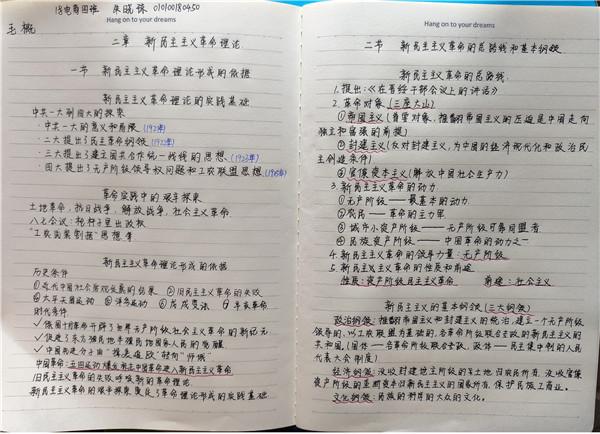 18电商困难 朱晓铢 010100180450
毛概
Hang on to your dreams
二章 新民主主义革命理论
一节 新民主主义革命理论形成的依据
新民主主义革命理论的实践基础
中共一大到四大的探索
·中共一大的意义和局限(1921年)
·二大提出了民主革命纲领(1922年)
·三大提出了建立国共合作统一战线的思想(1923年)
·四大提出了无产阶级领导权问题和工农联盟思想(1925年)
革命实践中的艰辛探索
土地革命,抗日战争,解放战争,社会主义革命
八七会议:枪杆子里出政权
"工农武装割据"思想等
新民主主义革命理论形成的依据
历史条件
①近代中国社会历史发展的结果 ②旧民主主义革命的失败
③太平天国运动 ④洋务运动 ⑤戊戌变法 ⑥辛亥革命
时代条件
✓俄国十月革命开辟了世界无产阶级社会主义革命的新纪元
✓促进了东方殖民地半殖民地国家人民的觉醒
✓中国先进分子由"横走西欧"转向"师俄"
中国革命:五四运动爆发前北中国革命进入新民主主义革命
旧民主主义革命的失败呼唤新的革命理论
新民主主义革命的艰辛探索奠定了革命理论形成的实践基础
Hang on to your dreams
二节 新民主主义革命的总路线和基本纲领
新民主主义革命的总路线
1.提出:《在晋绥干部会议上的讲话》
2.革命对象(三座大山)
①帝国主义(首要对象,推翻帝国主义的压迫是中国走向
独立和富强的前提)
②封建主义(反对封建主义,为中国的经济现代化和政治民
主创造条件)
③官僚资本主义(解放中国社会生产力)
3.新民主主义革命的动力
①无产阶级——最基本的动力
②农民——革命的主力军
③城市小资产阶级——无产阶级可靠同盟者
④民族资产阶级——中国革命的动力之一
4.新民主主义革命的领导力量:无产阶级
5.新民主主义革命的性质和前途
性质:资产阶级民主主义革命 前途:社会主义
新民主主义的基本纲领(三大纲领)
政治纲领:推翻帝国主义和封建主义的统治,建立一个无产阶级
领导的,以工农联盟为基础的,各革命阶级联合专政的新民主主义的
共和国。(国体—各革命阶级联合专政,政体—民主集中制的人民
代表大会制度)
经济纲领:没收封建地主阶级的土地归农民所有,没收官僚
资产阶级的垄断资本归新民主主义的国家所有,保护民族工商业。
文化纲领:民族的科学的大众的文化。